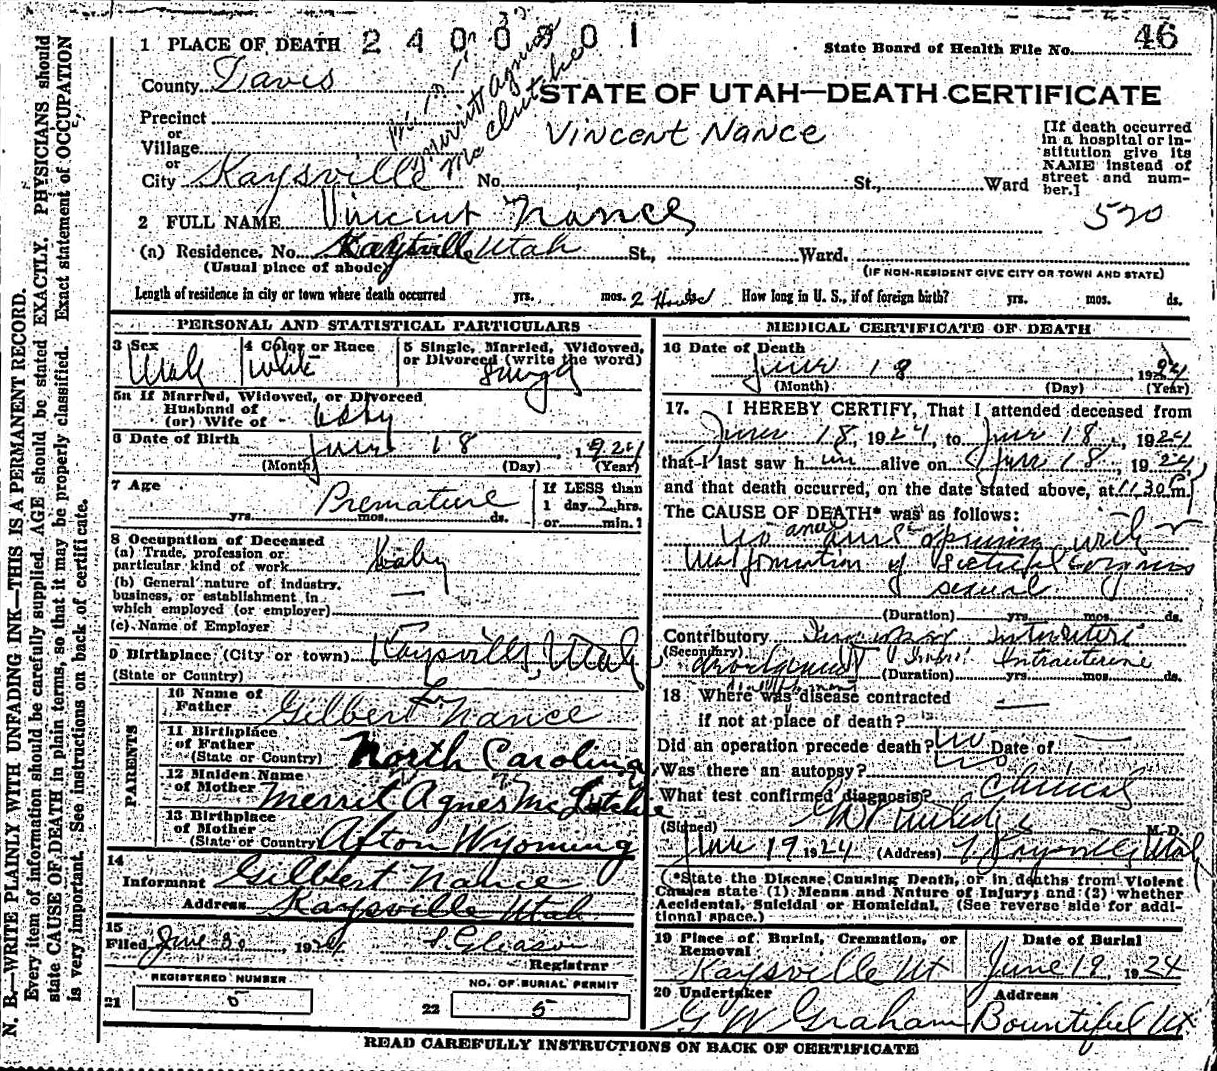 1 PLACE OF DEATH 2400801
State Board of Health File No. 46
County Davis
Merritt Agnes
STATE OF UTAH—DEATH CERTIFICATE
Precinct
or
Village
or
City Kaysville No. St., Ward
Vincent Nance
[If death occurred
in a hospital or in-
stitution give its
NAME instead of
street and num-
ber.]
520
2 FULL NAME Vincent Nance
(a) Residence, No. Kaysville Utah St., Ward.
(Usual place of abode)
(IF NON-RESIDENT GIVE CITY OR TOWN AND STATE)
Length of residence in city or town where death occurred yrs. mos. 2 Hours ds. How long in U. S., if of foreign birth? yrs. mos. ds.
PERSONAL AND STATISTICAL PARTICULARS
3 Sex
Male
4 Color or Race
White
5 Single, Married, Widowed,
or Divorced (write the word)
Single
5a If Married, Widowed, or Divorced
Husband of
(or) Wife of baby
6 Date of Birth June 18, 1924
(Month) (Day) (Year)
7 Age Premature
yrs. mos. ds.
If LESS than
1 day 2 hrs.
or min.
8 Occupation of Deceased
(a) Trade, profession or
particular kind of work baby
(b) General nature of industry,
business, or establishment in
which employed (or employer)
(c) Name of Employer
9 Birthplace (City or town) Kaysville, Utah
(State or Country)
PARENTS
10 Name of
Father Gilbert L Nance
11 Birthplace
of Father
(State or Country) North Carolina
12 Maiden Name
of Mother Merril Agnes
13 Birthplace
of Mother
(State or Country) Afton Wyoming
14
Informant Gilbert Nance
Address Kaysville Utah
15
Filed June 30, 1924 S. Gleason
Registrar
REGISTERED NUMBER
21 6
NO. OF BURIAL PERMIT
22 5
MEDICAL CERTIFICATE OF DEATH
16 Date of Death
June 18 1924
(Month) (Day) (Year)
17. I HEREBY CERTIFY, That I attended deceased from
June 18, 1924, to June 18, 1924
that I last saw him alive on June 18, 1924,
and that death occurred, on the date stated above, at 11.30 P.m.
The CAUSE OF DEATH* was as follows:
No anal opening with
Malformation of sexual organs
sexual
(Duration) yrs. mos. ds.
Contributory
(Secondary) development Intrauterine
(Duration) yrs. mos. ds.
18. Where was disease contracted
if not at place of death?
Did an operation precede death? No Date of
Was there an autopsy?
What test confirmed diagnosis? Clinical
(Signed) M. D.
June 19 1924 (Address) Kaysville Utah
(*State the Disease Causing Death, or in deaths from Violent
Causes state (1) Means and Nature of Injury; and (2) whether
Accidental, Suicidal or Homicidal. (See reverse side for addi-
tional space.)
19 Place of Burial, Cremation, or
Removal
Kaysville Ut
Date of Burial
June 19, 1924
20 Undertaker
G W Graham
Address
Bountiful Ut
READ CAREFULLY INSTRUCTIONS ON BACK OF CERTIFICATE
N. B.—WRITE PLAINLY WITH UNFADING INK—THIS IS A PERMANENT RECORD.
Every item of information should be carefully supplied. AGE should be stated EXACTLY. PHYSICIANS should
state CAUSE OF DEATH in plain terms, so that it may be properly classified. Exact statement of OCCUPATION
is very important. See instructions on back of certificate.